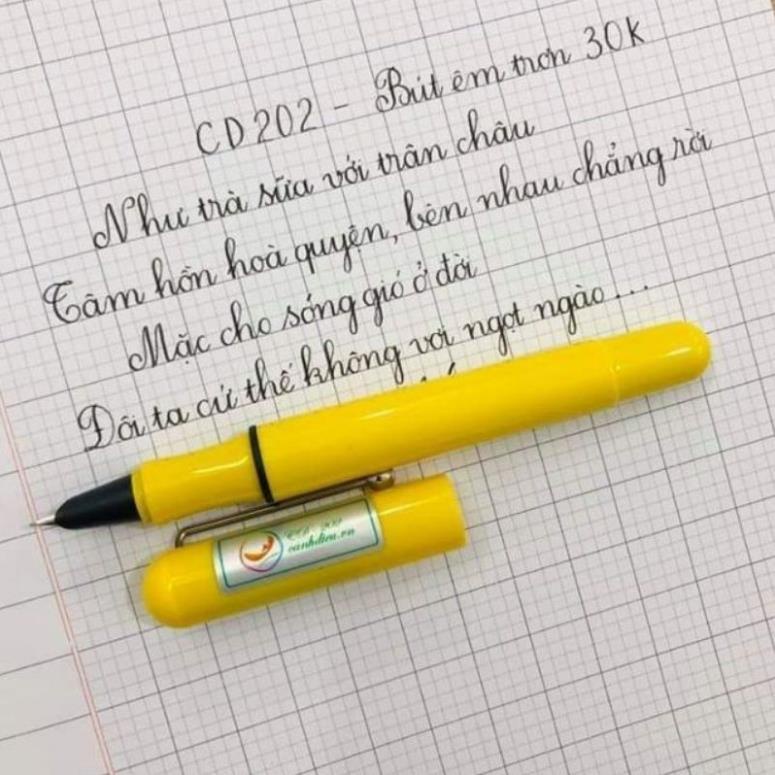 CD202 - Bút êm trơn 30K
Như trà sữa với trân châu
Tâm hồn hoà quyện, bên nhau chẳng rời
Mặc cho sóng gió ở đời
Đôi ta cứ thế không vơi ngọt ngào...
canhdieu.vn